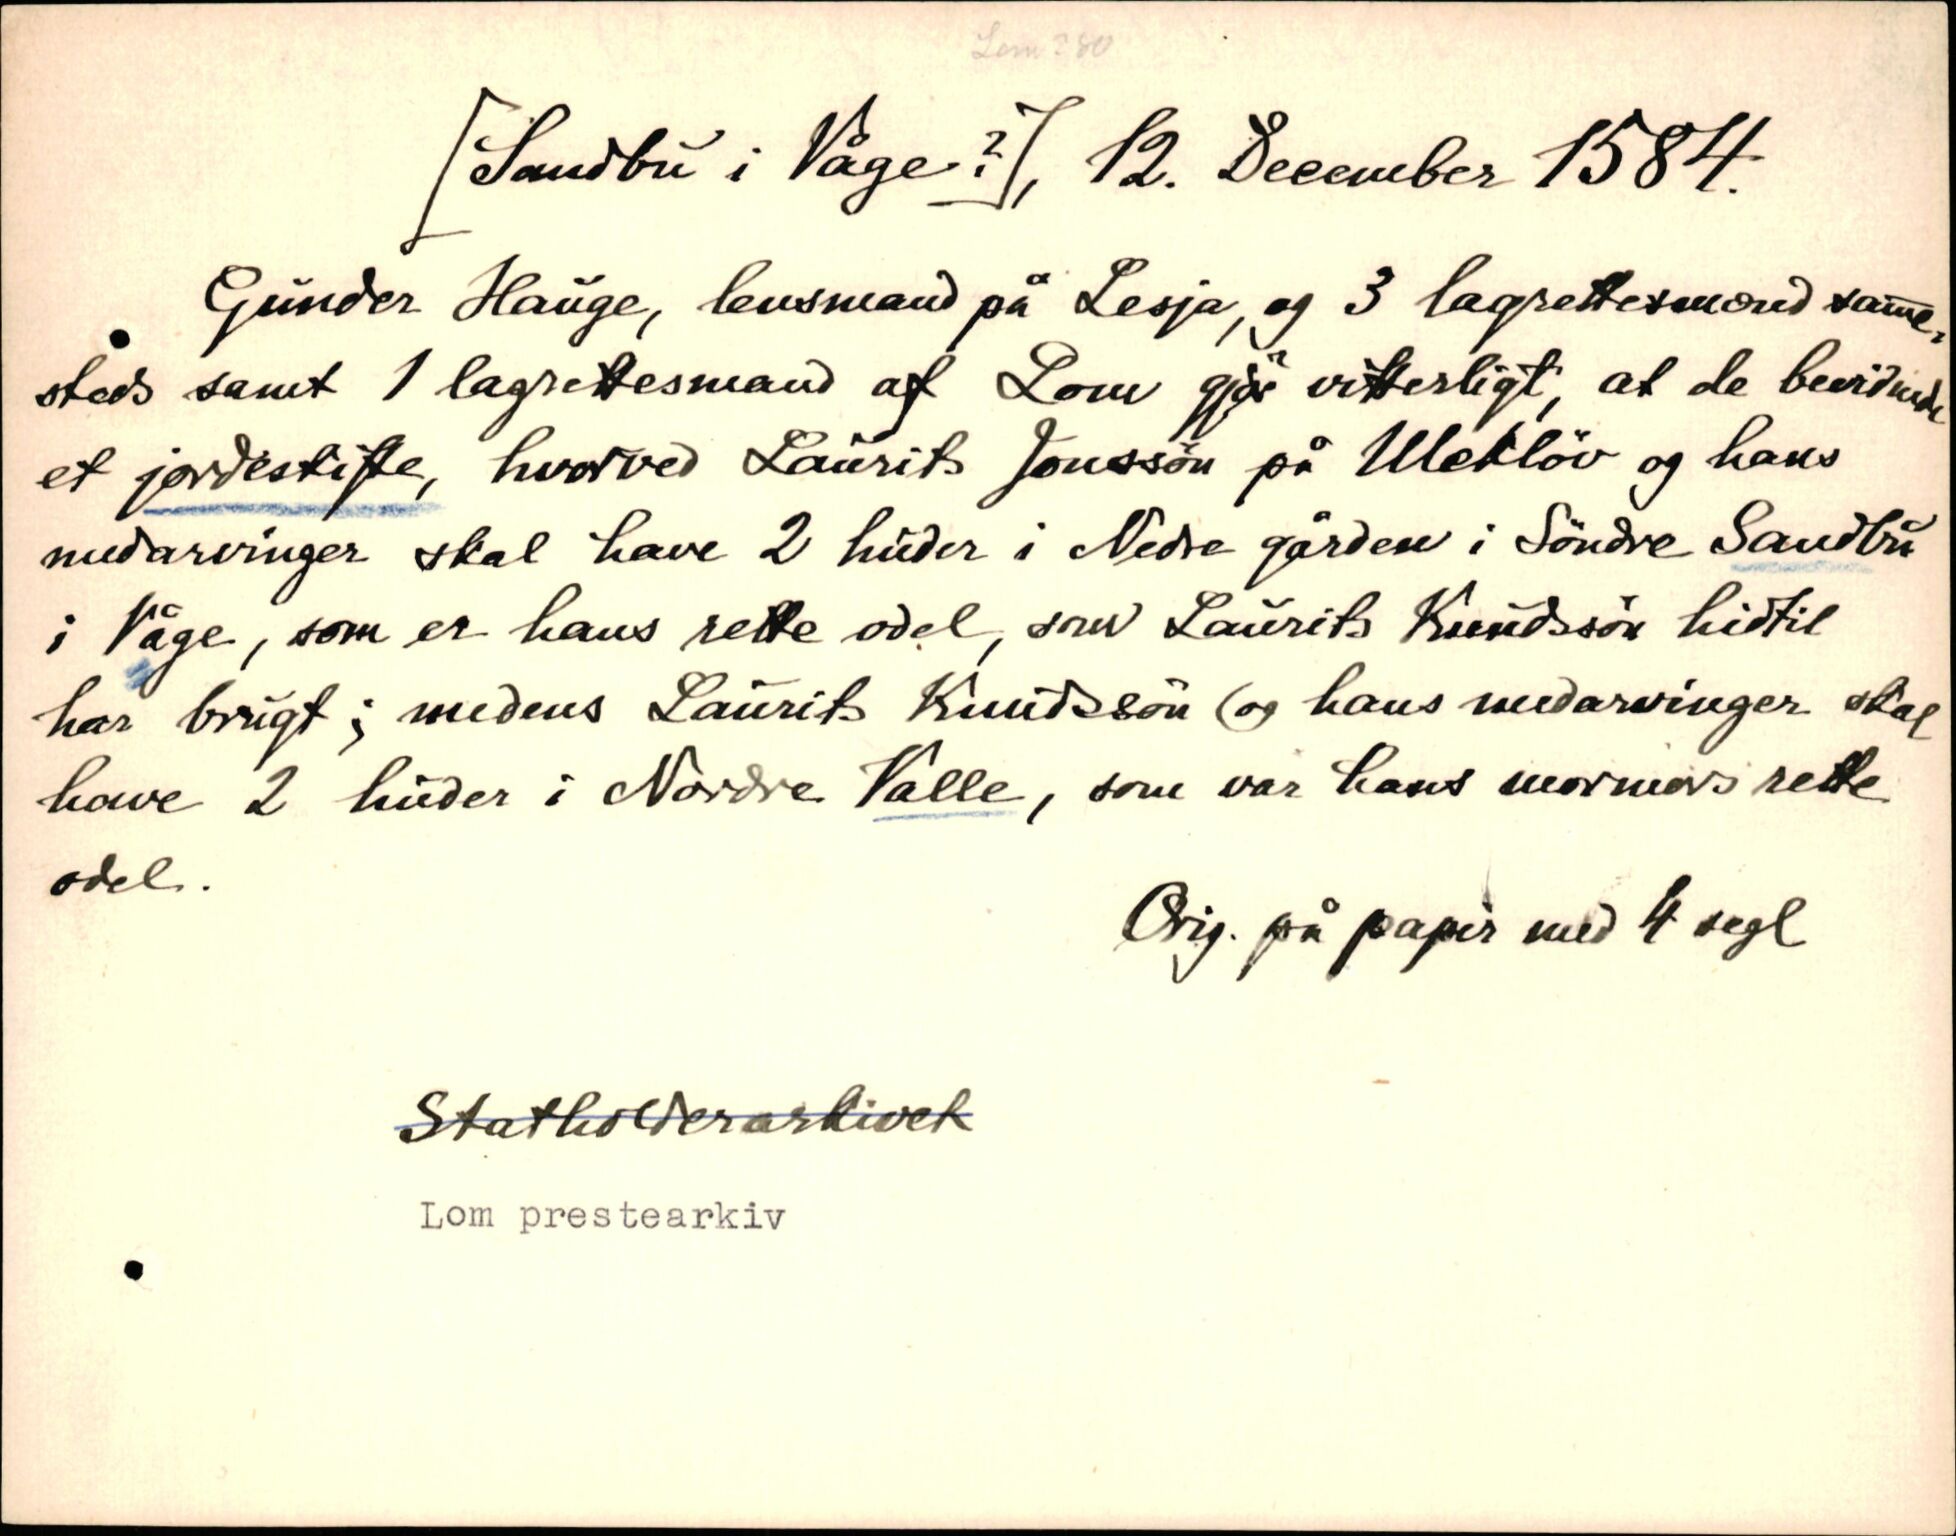 [Sandbu i Våge?], 12. December 1584.
Gunder Hauge, lensmand på Lesja, og 3 lagrettesmænd samme-
steds samt 1 lagrettesmand af Lom gjör vitterligt, at de bevidnede
et jordeskifte, hvorved Laurits Jonssön på Uleklöv og hans
medarvinger skal have 2 huder i Nedre gården i Söndre Sandbu
i Våge, som er hans rette odel, som Laurits Knudssön hidtil
har brugt; medens Laurits Knudssön (og hans medarvinger skal
have 2 huder i Nordre Valle, som var hans mormors rette
odel.
Orig. på papir med 4 segl
Statholderarkivet
Lom prestearkiv